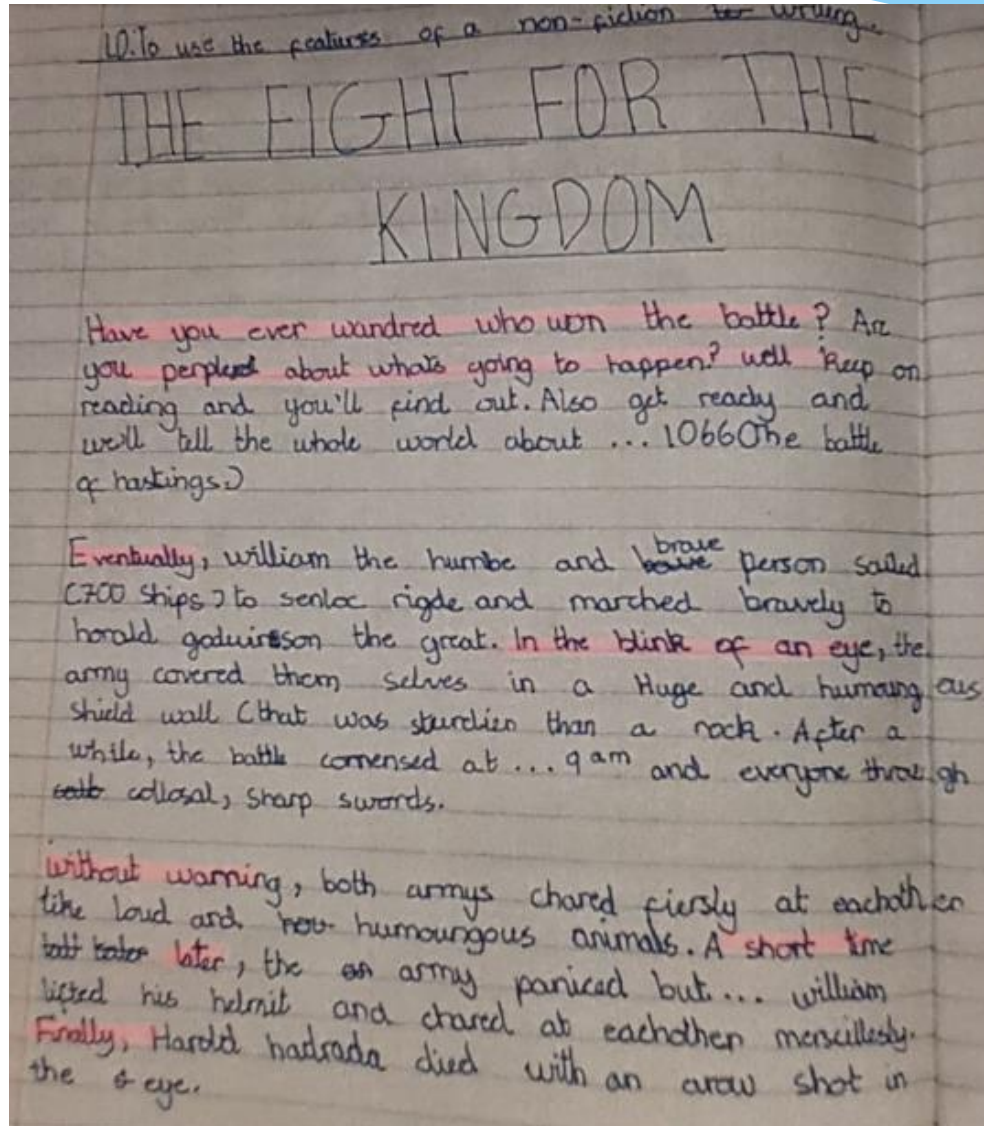 LO.To use the features of a non-fiction writing.
THE FIGHT FOR THE
KINGDOM
Have you ever wandred who won the battle? Are
you about whats going to happen? well keep on
reading and you'll find out. Also get ready and
we'll tell the whole world about ... 1066 (The battle
of hastings.)
Eventually, william the humbe and brave person sailed
(700 ships) to senloc rigde and marched bravely to
horald the great. In the blink of an eye, the
army covered them selves in a Huge and humoungous
shield wall (that was sturdier than a rock. After a
while, the battle comensed at ... 9am and everyone through
collosal, sharp swords.
without warning, both armys chared fiersly at eachother
like loud and humoungous animals. A short time
later, the army paniced but... william
lifted his helmit and chared at eachother merscillesly.
Finally, Harold hadrada died with an arow shot in
the eye.